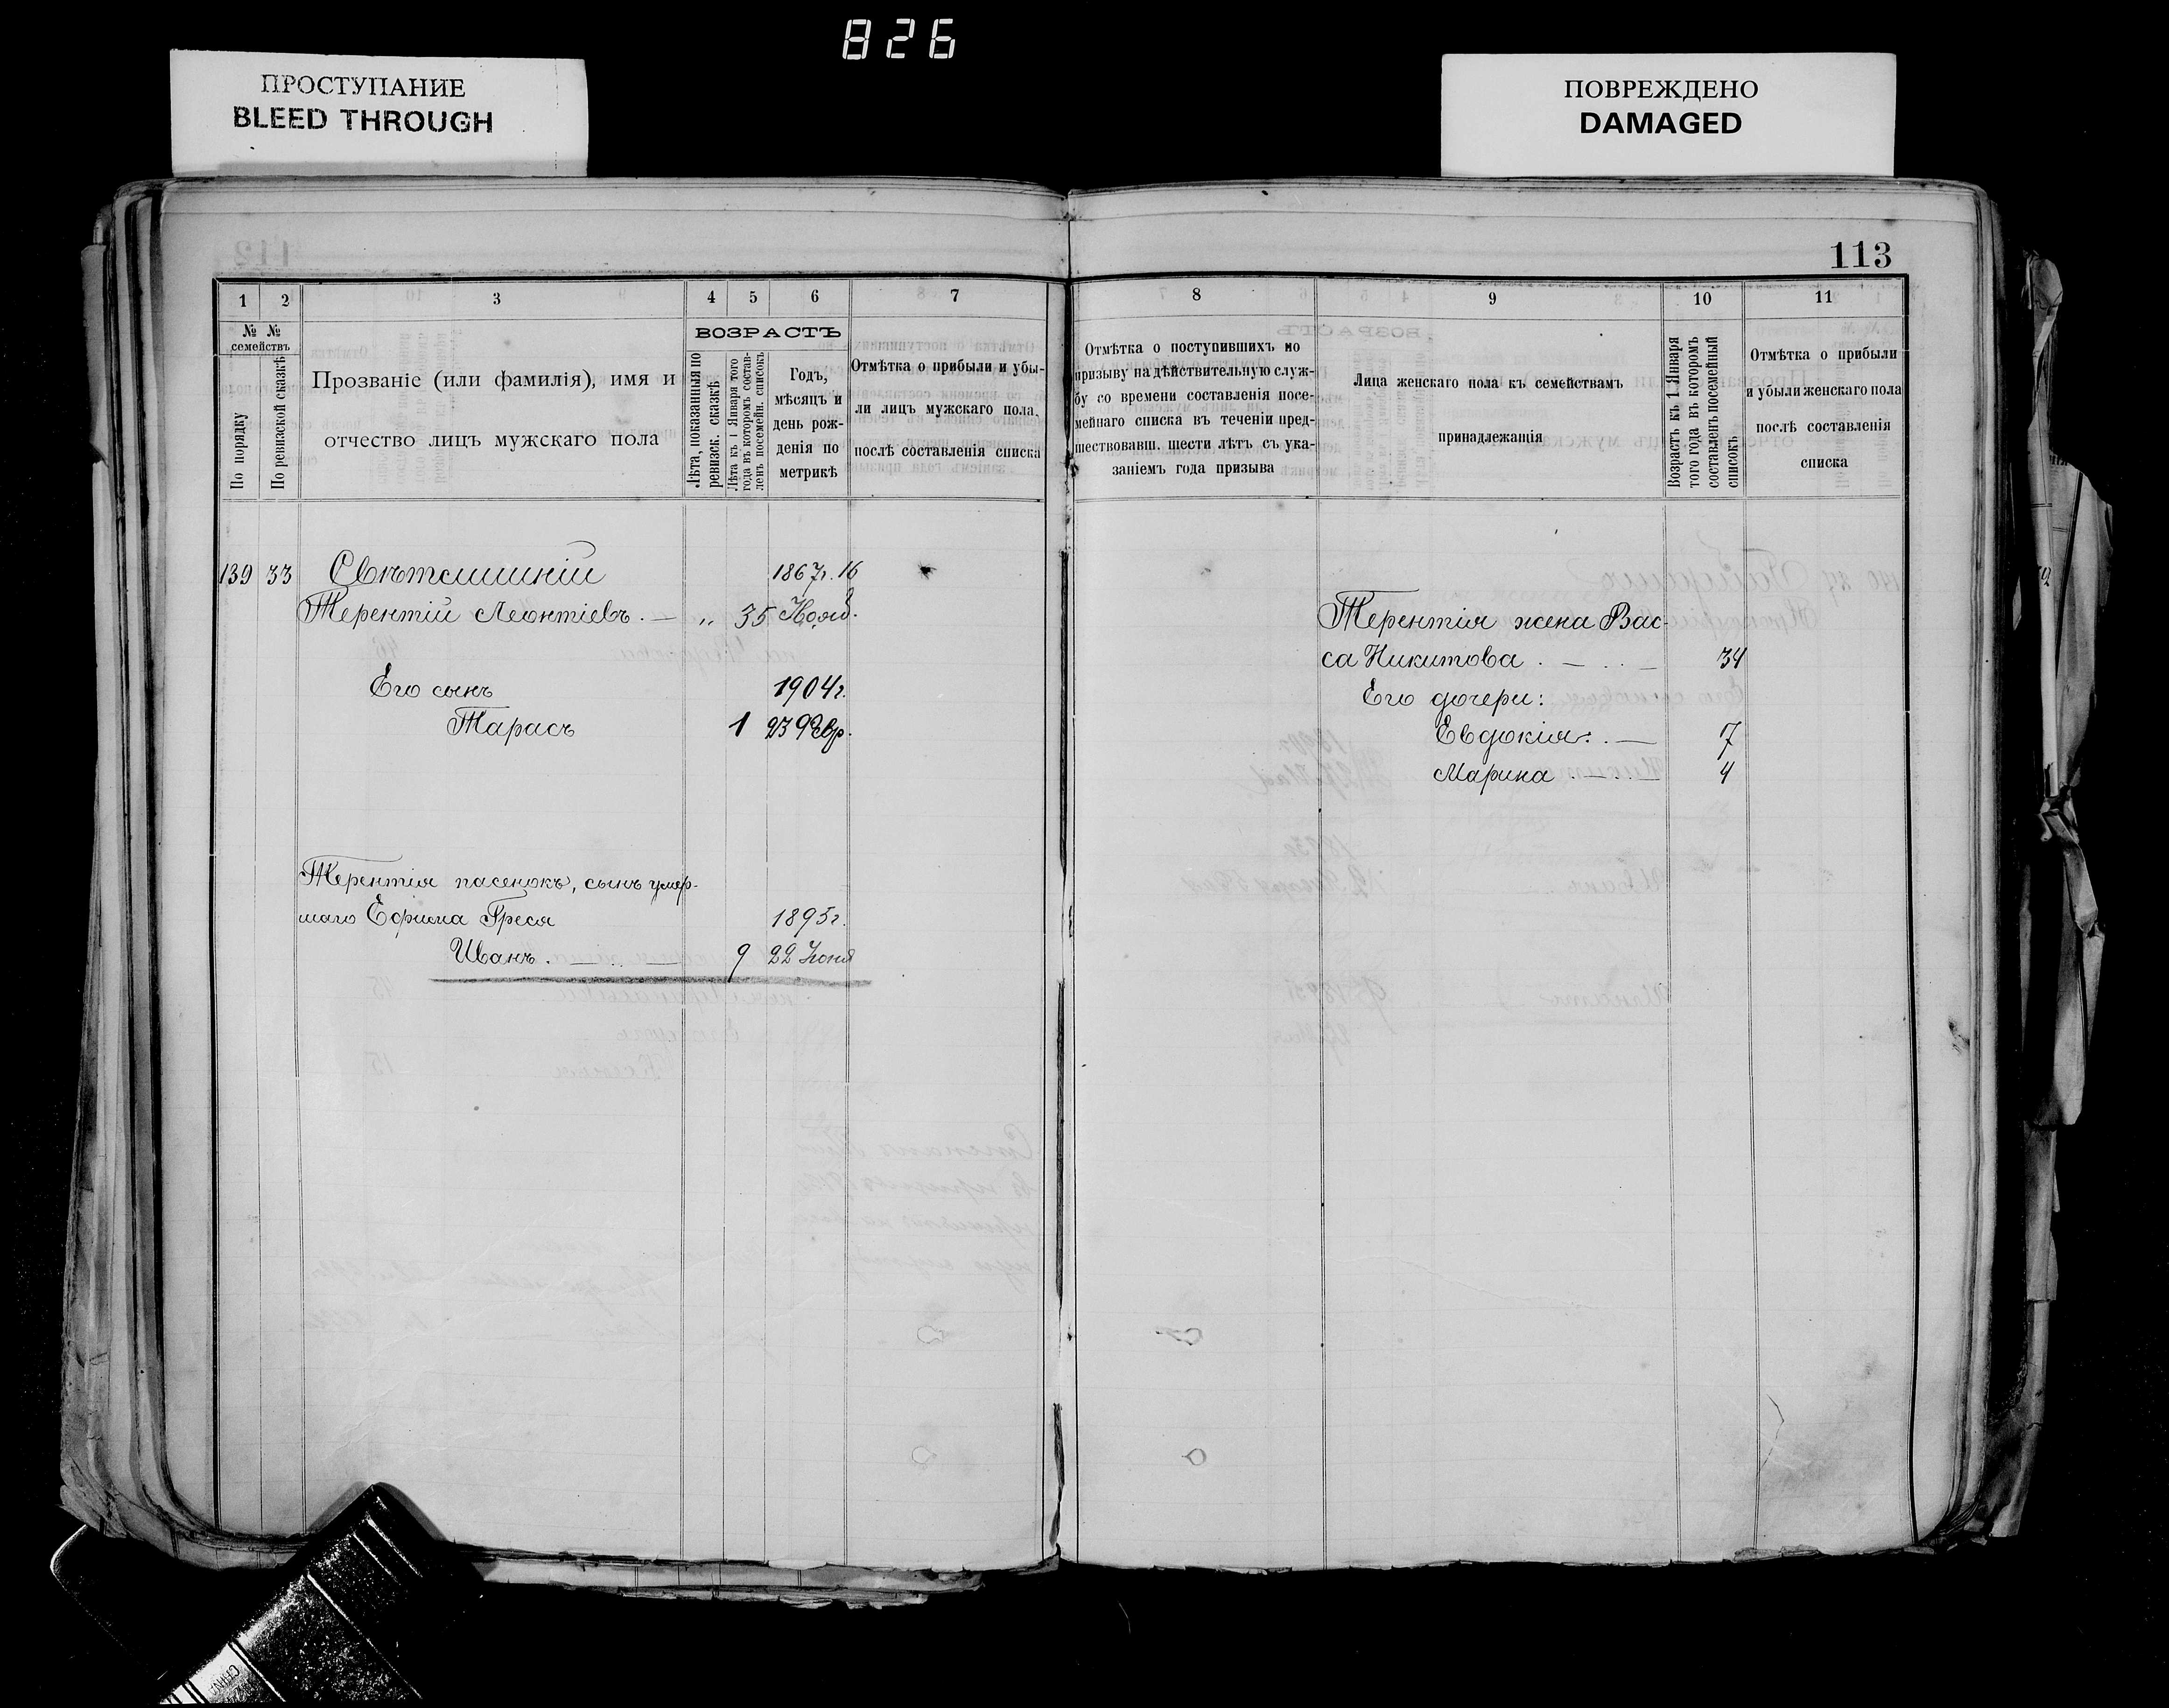 826
ПРОСТУПАНИЕ
BLEED THROUGH
ПОВРЕЖДЕНО
DAMAGED
113
1 2 3 4 5 6 7
№ № семействъ
По порядку
По ревизской сказкѣ
Прозваніе (или фамилія), имя и
отчество лицъ мужскаго пола
ВОЗРАСТЪ
Лѣта, показанныя по
ревизск. сказкѣ
Лѣта къ 1 Января того
года въ которомъ состав-
ленъ посемейн. списокъ
Годъ,
мѣсяцъ и
день рож-
денія по
метрикѣ
Отмѣтка о прибыли и убы-
ли лицъ мужскаго пола,
послѣ составленія списка
139 33 1867г. 16
Терентій Леонтіевъ. — „ 35 Нояб.
Его сынъ 1904г.
Тарасъ 1 23 Февр.
Терентія пасенокъ, сынъ умер-
шаго Ефима Греся 1895г.
Иванъ. — 9 22 Іюня
8 9 10 11
Отмѣтка о поступившихъ по
призыву на дѣйствительную служ-
бу со времени составленія посе-
мейнаго списка въ теченіи пред-
шествовавш. шести лѣтъ съ ука-
заніемъ года призыва
Лица женскаго пола къ семействамъ
принадлежащія
Возрастъ къ 1 Января
того года въ которомъ
составленъ посемейный
списокъ
Отмѣтка о прибыли
и убыли женскаго пола
послѣ составленія
списка
Терентія жена Вас-
са Никитова . — . . — 34
Его дочери:
Евдокія. . — 7
Марина . — . . — 4